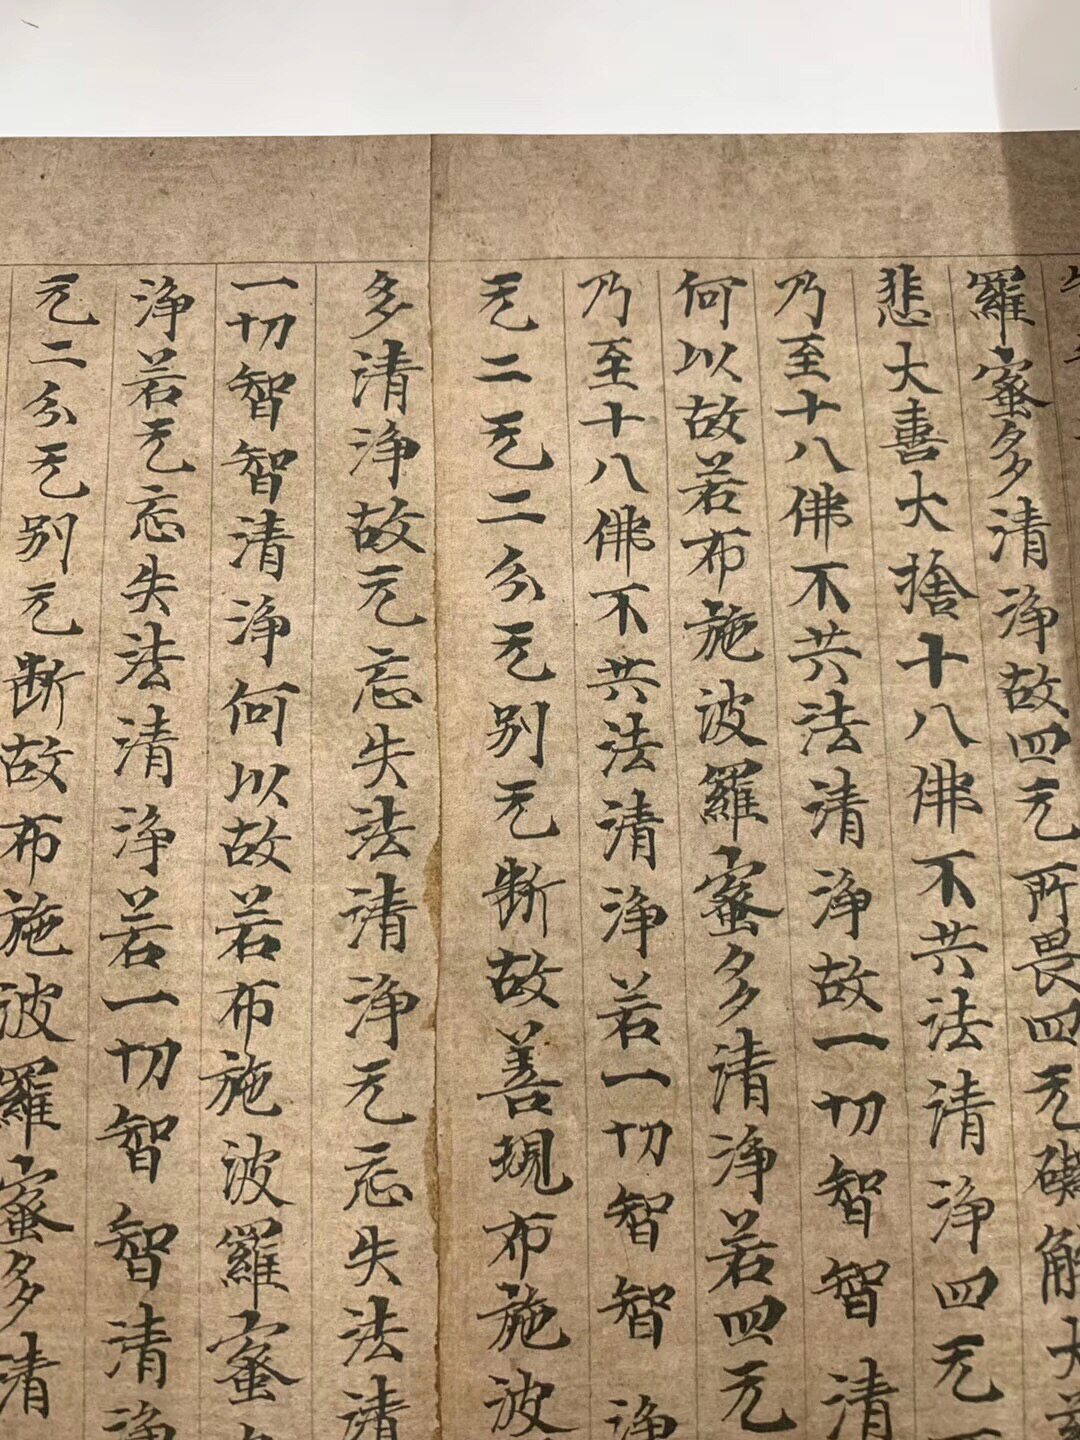 羅蜜多清淨故四无所畏四无礙解大
悲大喜大捨十八佛不共法清淨四无
乃至十八佛不共法清淨故一切智智清
何以故若布施波羅蜜多清淨若四无
乃至十八佛不共法清淨若一切智智淨
无二无二分无別无斷故善現布施波
多清淨故无忘失法清淨无忘失法清
一切智智清淨何以故若布施波羅蜜
淨若无忘失法清淨若一切智智清淨
无二分无別无斷故布施波羅蜜多清